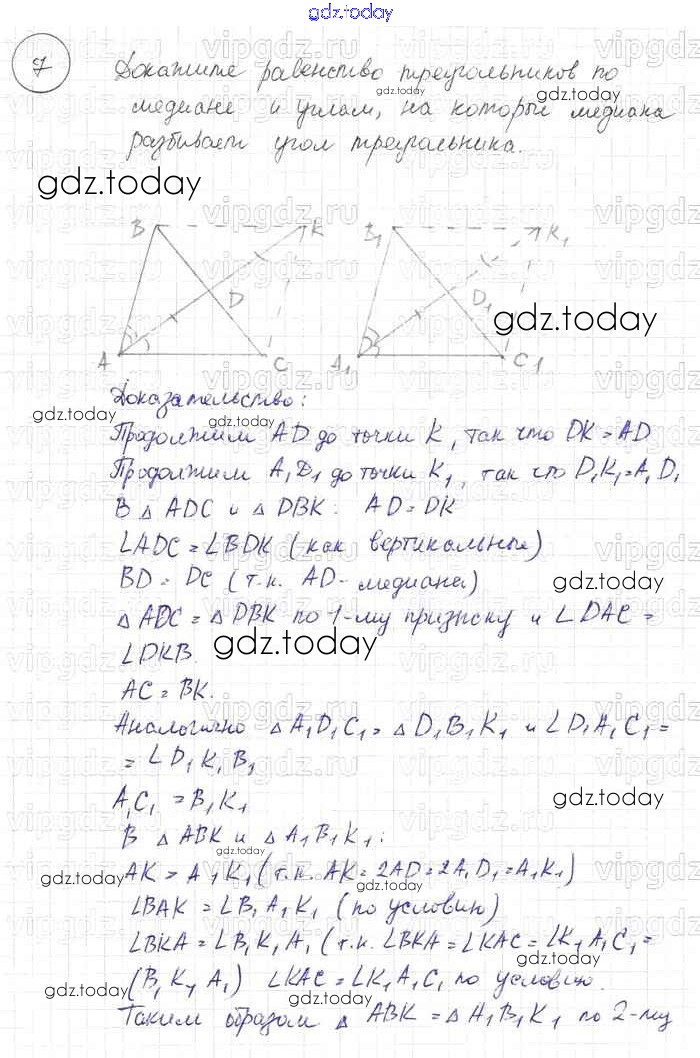 gdz.today
7
Докажите равенство треугольников по
медиане и углам, на которые медиана
разбивает угол треугольника.
gdz.today
gdz.today
B K B₁ K₁
D D₁
gdz.today
A C A₁ C₁
Доказательство:
gdz.today
gdz.today
Продолжим AD до точки K, так что DK = AD
Продолжим A₁D₁ до точки K₁, так что D₁K₁=A₁D₁
В △ ADC и △ DBK: AD = DK
∠ADC = ∠BDK (как вертикальные)
BD = DC (т.к. AD - медиана)
gdz.today
△ ADC = △ DBK по 1-му признаку и ∠DAC =
gdz.today
∠DKB.
AC = BK.
Аналогично △ A₁D₁C₁ = △ D₁B₁K₁ и ∠D₁A₁C₁ =
= ∠D₁K₁B₁
A₁C₁ = B₁K₁
gdz.today
В △ ABK и △ A₁B₁K₁:
AK = A₁K₁ (т.к. AK = 2AD = 2A₁D₁ = A₁K₁)
gdz.today
gdz.today
∠BAK = ∠B₁A₁K₁ (по условию)
∠BKA = ∠B₁K₁A₁ (т.к. ∠BKA = ∠KAC = ∠K₁A₁C₁ =
(B₁K₁A₁) ∠KAC = ∠K₁A₁C₁ по условию.
gdz.today
gdz.today
Таким образом △ ABK = △ A₁B₁K₁ по 2-му